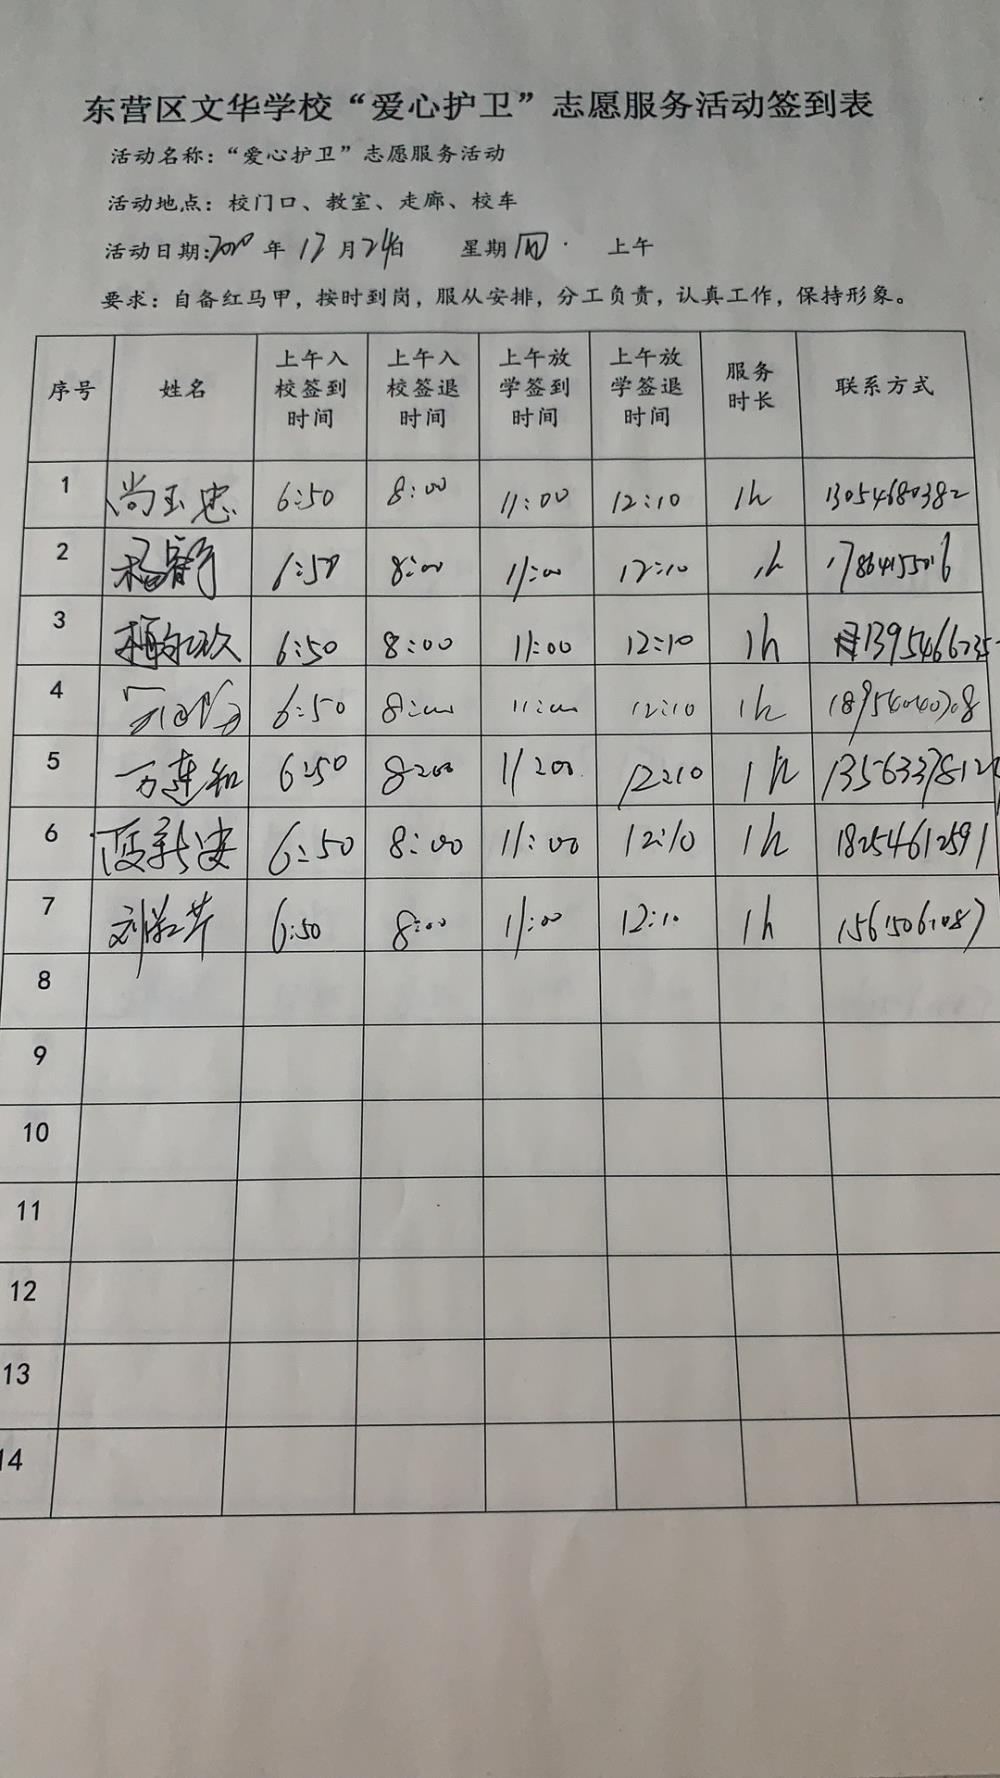 东营区文华学校“爱心护卫”志愿服务活动签到表
活动名称：“爱心护卫”志愿服务活动
活动地点：校门口、教室、走廊、校车
活动日期:2020年12月24日 星期四 上午
要求：自备红马甲，按时到岗，服从安排，分工负责，认真工作，保持形象。
序号 姓名 上午入校签到时间 上午入校签退时间 上午放学签到时间 上午放学签退时间 服务时长 联系方式
1 尚玉忠 6:50 8:00 11:00 12:10 1h 13054680382
2 6:50 8:00 11:00 12:10 1h 17864155016
3 6:50 8:00 11:00 12:10 1h
4 6:50 8:00 11:00 12:10 1h
5 万连和 6:50 8:00 11:00 12:10 1h
6 6:50 8:00 11:00 12:10 1h 18254612591
7 6:50 8:00 11:00 12:10 1h 15615061087
8
9
10
11
12
13
14